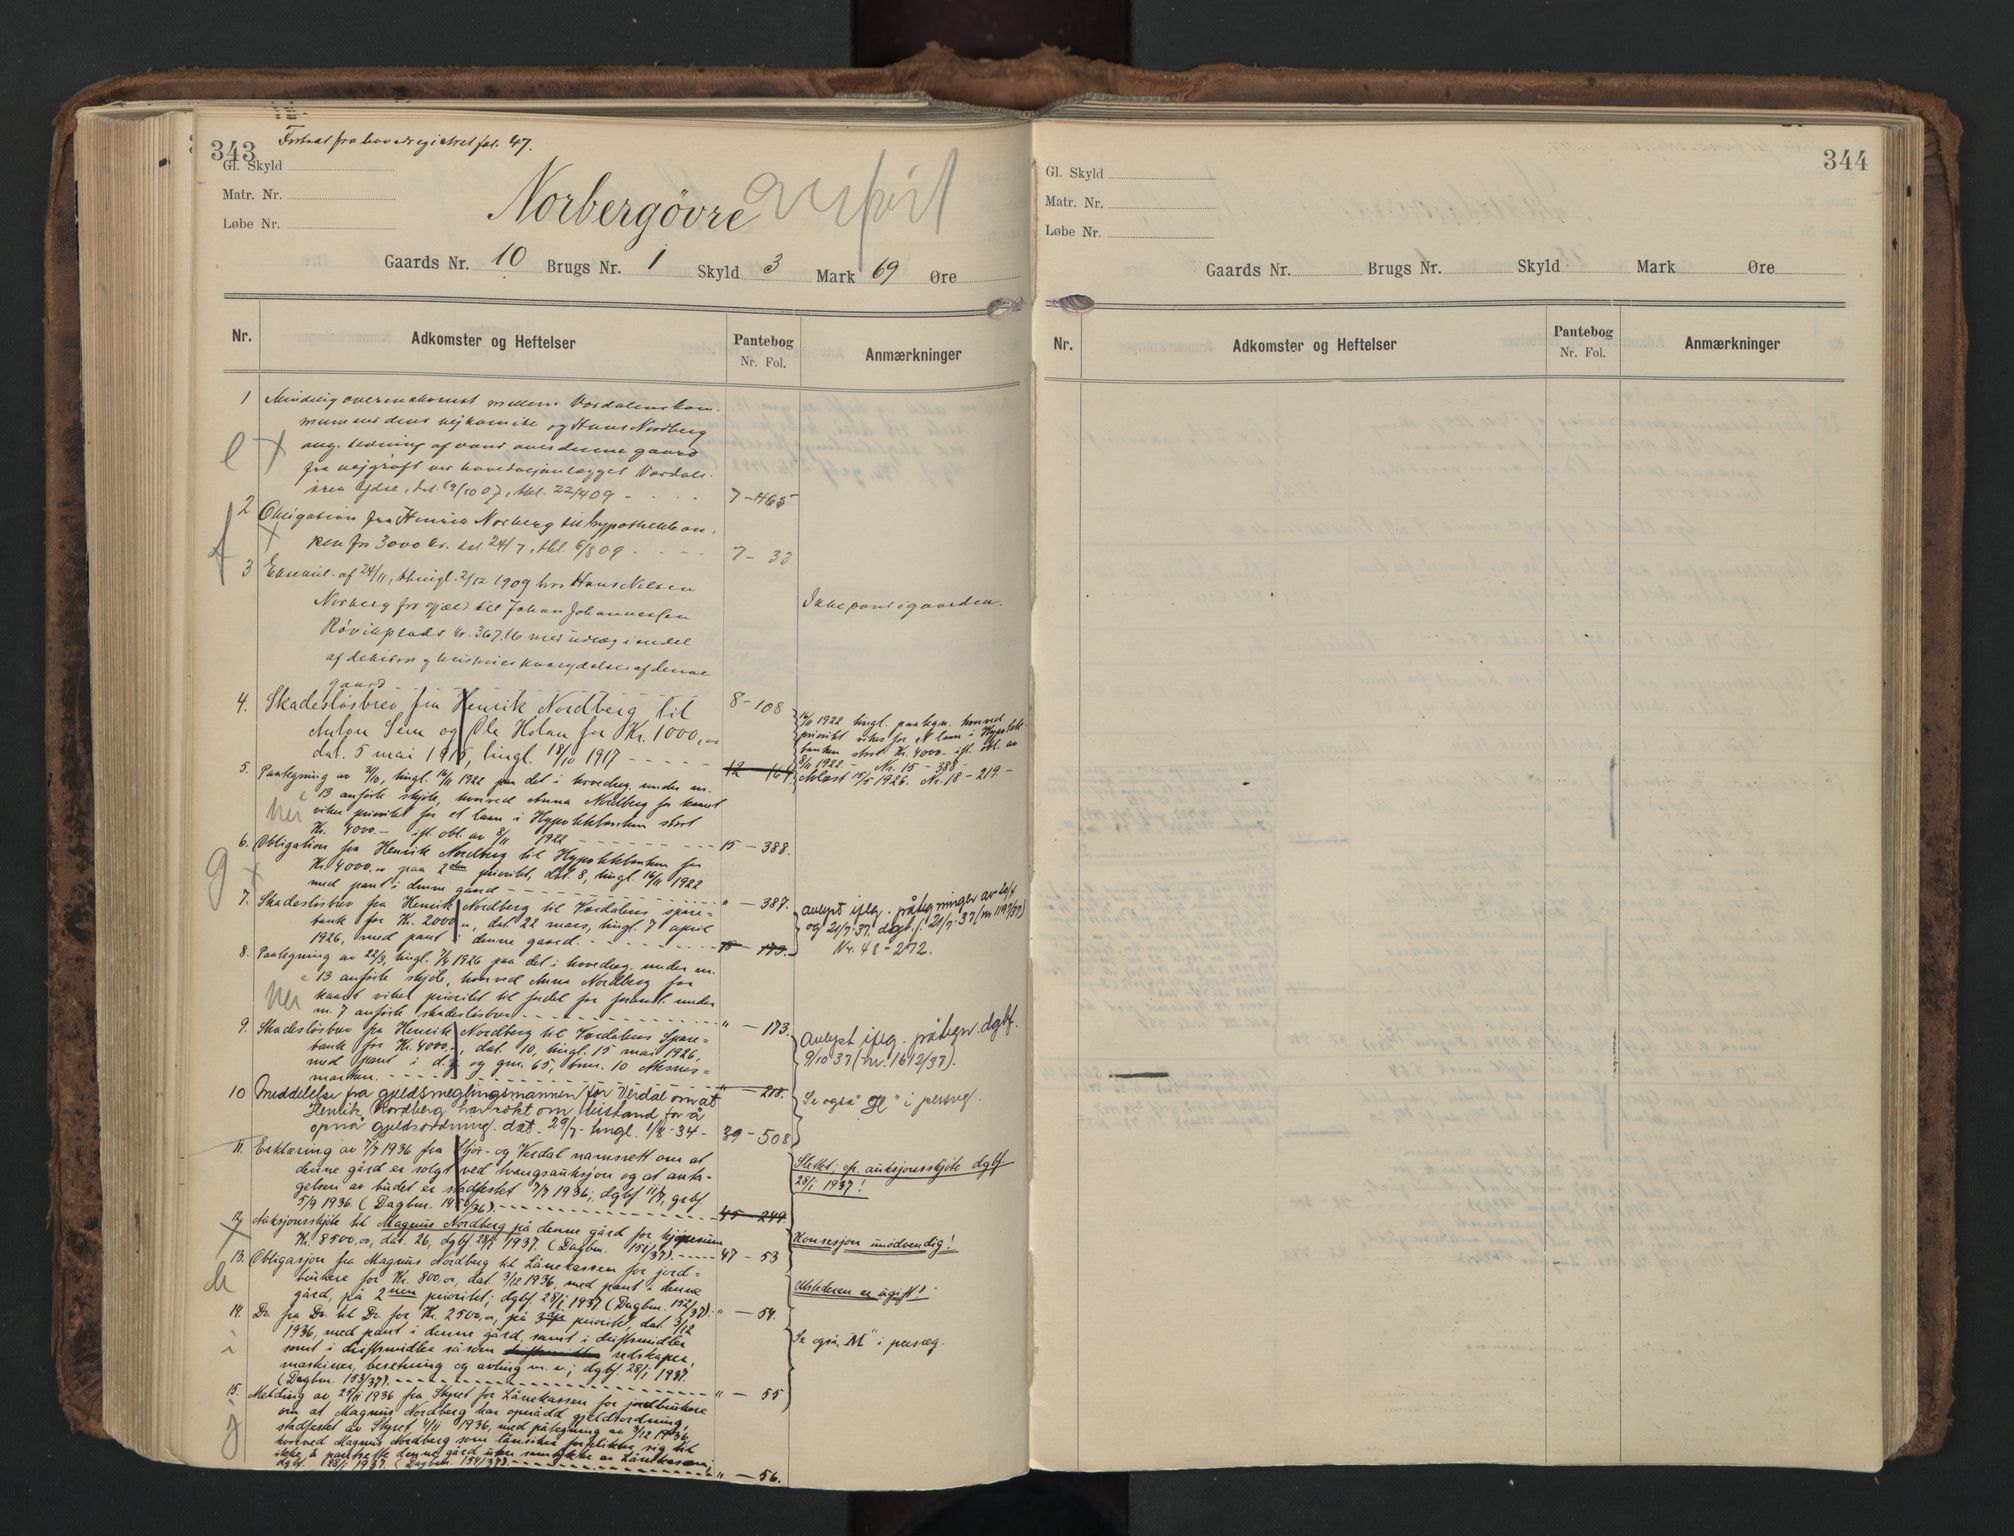 343
Fortsat fra hovedregistret fol. 47.
Gl. Skyld
Matr. Nr.
Løbe Nr.
Norbergøvre
Gaards Nr. 10 Brugs Nr. 1 Skyld 3 Mark 69 Øre
Nr. Adkomster og Heftelser Pantebog Nr. Fol. Anmærkninger
1 Mindelig overenskomst mellem Værdalens kom-
mune ved dens vejkomite og Hans Nordberg
ang. ledning af vand over denne gaard
fra vejgrøft ved hovedvejanlægget Værdals-
øren dat. 19/10 07, thl. 22/4 09 - 7-465
2 Obligation fra Henrik Norberg til hypothekban-
ken for 3000 kr. dat. 24/7, thl. 6/8 09 - 7-33
3 af 24/11, thingl. 2/12 1909 hos Hans Nilsen
Norberg for gjæld til Johan Johannessen
Røvikplads kr. 367.16 med udlæg i en del
af denne
gaard 8-108
Ikke pant i gaarden.
4. Skadesløsbrev fra Henrik Nordberg til
Anton Sem og Ole Holan for Kr. 1000,00
dat. 5 mai 1915, tingl. 18/10 1917 - 12 169
16/11 1922 tingl. paategn. hvorved
prioritet vikes for et laan i Hypotek-
banken stort Kr. 4000.- ifl. obl. av
8/11 1922 - Nr. 15 - 388 -
Avlæst 15/5 1926. Nr. 18 - 219 -
5. Paategning av 3/10, tingl. 16/11 1922 paa det i hovedreg. under nr.
13 anførte skjøte, hvorved Anna Nordberg for kaaret
viker prioritet for et laan i Hypotekbanken stort
Kr. 4000.- ifl. obl. av 8/11 1922 - 15 - 388.
her
6. Obligation fra Henrik Nordberg til Hypotekbanken for
Kr. 4000,00 paa 2den prioritet, dat. 8, tingl. 16/11 1922
med pant i denne gaard - " - 387.
7. Skadesløsbrev fra Henrik Nordberg til Værdalens spare-
bank for Kr. 2000,00, dat. 22 mars, tingl. 7 april
1926, med pant i denne gaard - 18 - 173.
avlyst iflg. påtegninger av 20/4
og 21/7-37. dgbf. 21/7-37 (nr 1197/37)
Nr. 48 - 272.
8. Paategning av 22/3, tingl. 7/4 1926 paa det i hovedreg. under nr.
13 anførte skjøte, hvorved Anna Nordberg for
kaaret viker prioritet til fordel for foranst. under
nr. 7 anførte skadesløsbrev - " - 173.
her
9. Skadesløsbrev fra Henrik Nordberg til Værdalens Spare-
bank for Kr. 4000,00, dat. 10, tingl. 15 mai 1926,
med pant i d.g. og gnr. 65, bnr. 10
" - 218.
Avlyst iflg. påtegn. dgbf.
9/10 37 (nr. 1612/37).
10 Meddelelse fra gjeldsmeglingsmannen for Verdal om at
Henrik Nordberg har søkt om bistand for å
opnå gjeldsordning. dat. 29/7- tingl. 1/8-34 - 39 - 508
Se også "H" i persreg.
11. Erklæring av 7/7 1936 fra Stjør- og Verdal namsrett om at
denne gård er solgt ved tvangsauksjon og at anta-
gelsen av budet er stadfestet 7/7 1936; dgbf 11/7, grbf
5/9 1936 (Dagbnr. /36). - 45 - 249.
Slettet, cp. auksjonsskjøte dgbf
28/1 1937!
12 Auksjonsskjøte til Magnus Nordberg på denne gård for kjøpesum
Kr. 8500,00, dat. 26, dgbf 28/1 1937. (Dagbnr. 151/37). - 47 - 53
Konsesjon unødvendig!
13. Obligasjon fra Magnus Nordberg til Lånekassen for jord-
brukere for Kr. 800,00, dat 3/12 1936, med pant i denne
gård, på 2nen prioritet; dgbf. 28/1 1937 (Dagbnr. 152/37). " - 54.
Utstederen er ugift!
14. Do. fra Do. til Do. for Kr. 2500,00, på 3dje prioritet, dat. 3/12
1936, med pant i denne gård, samt i driftsmidler
samt i driftsmidler såsom redskaper,
maskiner, besetning og avling m.v.; dgbf. 28/1 1937.
(Dagbnr. 153/37). - " - 55
Se også "M" i persreg.
15. Melding av 25/11 1936 fra Styret for Lånekassen for jordbrukere
om at Magnus Nordberg har opnådd gjeldsordning,
stadfestet av Styret 4/11 1936, med påtegning av 3/12 1936,
hvorved Magnus Nordberg som låntaker forplikter sig til
ikke å pantsette denne gård uten samtykke av Lånekassen;
dgbf. 28/1 1937. (Dagbnr. 154/37). - " - 56.
344
Gl. Skyld
Matr. Nr.
Løbe Nr.
Gaards Nr. Brugs Nr. Skyld Mark Øre
Nr. Adkomster og Heftelser Pantebog Nr. Fol. Anmærkninger